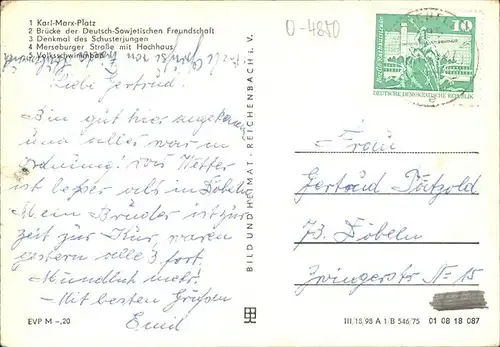 1 Karl-Marx-Platz
2 Brücke der Deutsch-Sowjetischen Freundschaft
3 Denkmal des Schusterjungen
4 Merseburger Straße mit Hochhaus
5 Volksschwimmbad
Liebe Gertrud!
Bin gut hier angekommen
und alles war in
Ordnung! das Wetter
ist besser als in Döbeln
Mein Bruder ist zur
Zeit zur Kur, waren
gestern alle 3 fort.
Mündlich mehr.
Mit besten Grüßen
Emil
EVP M –,20
BILD UND HEIMAT · REICHENBACH i. V.
O-4850
10
DEUTSCHE DEMOKRATISCHE REPUBLIK
Frau
Gertrud Pätzold
73 Döbeln
Zwingerstr N-15
III/18/98 A 1 B 546/75 01 08 18 087